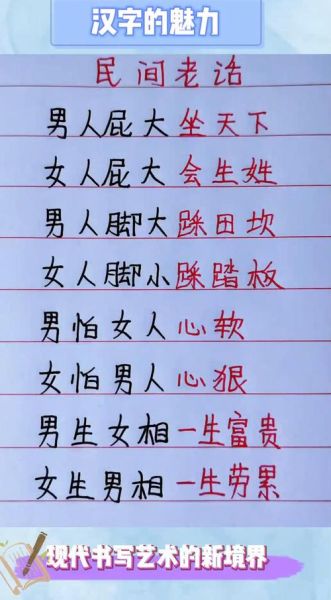 汉字的魅力
民间老话
男人屁大坐天下
女人屁大会生姓
男人脚大踩田坎
女人脚小踩踏板
男怕女人心软
女怕男人心狠
男生女相一生富贵
女生男相一生劳累
现代书写艺术的新境界